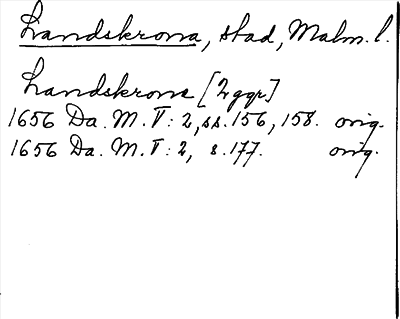 Landskrona, stad, Malm. l.
Landskrona [2 ggr]
1656 Da. M. V: 2, ss. 156, 158. orig.
1656 Da. M. V: 2, s. 177. orig.